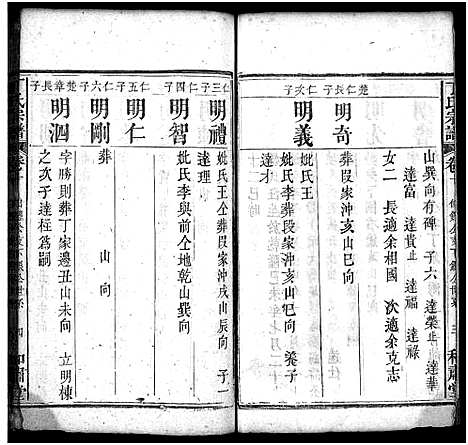 丁氏宗譜
卷
三
山巽向有碑 子六 達榮 達華
達富 達貴止 達福 達祿
女二 長適余相國 次適余克志
楚仁長子
明奇
葬段家沖亥山巳向
仁次子
明義
妣氏王
妣氏李葬段家沖亥山巳向 葵子
達才
仁三子
明禮
妣氏王仝葬段家沖戌山辰向 子一
達理
仁四子
明智
妣氏李與前仝地乾山巽向
仁五子
明仁
仁六子
明剛
葬 山 向
楚章長子
明泗
字勝則葬丁家邊丑山未向 立明棟
之次子達程為嗣
丁氏宗譜
卷
四